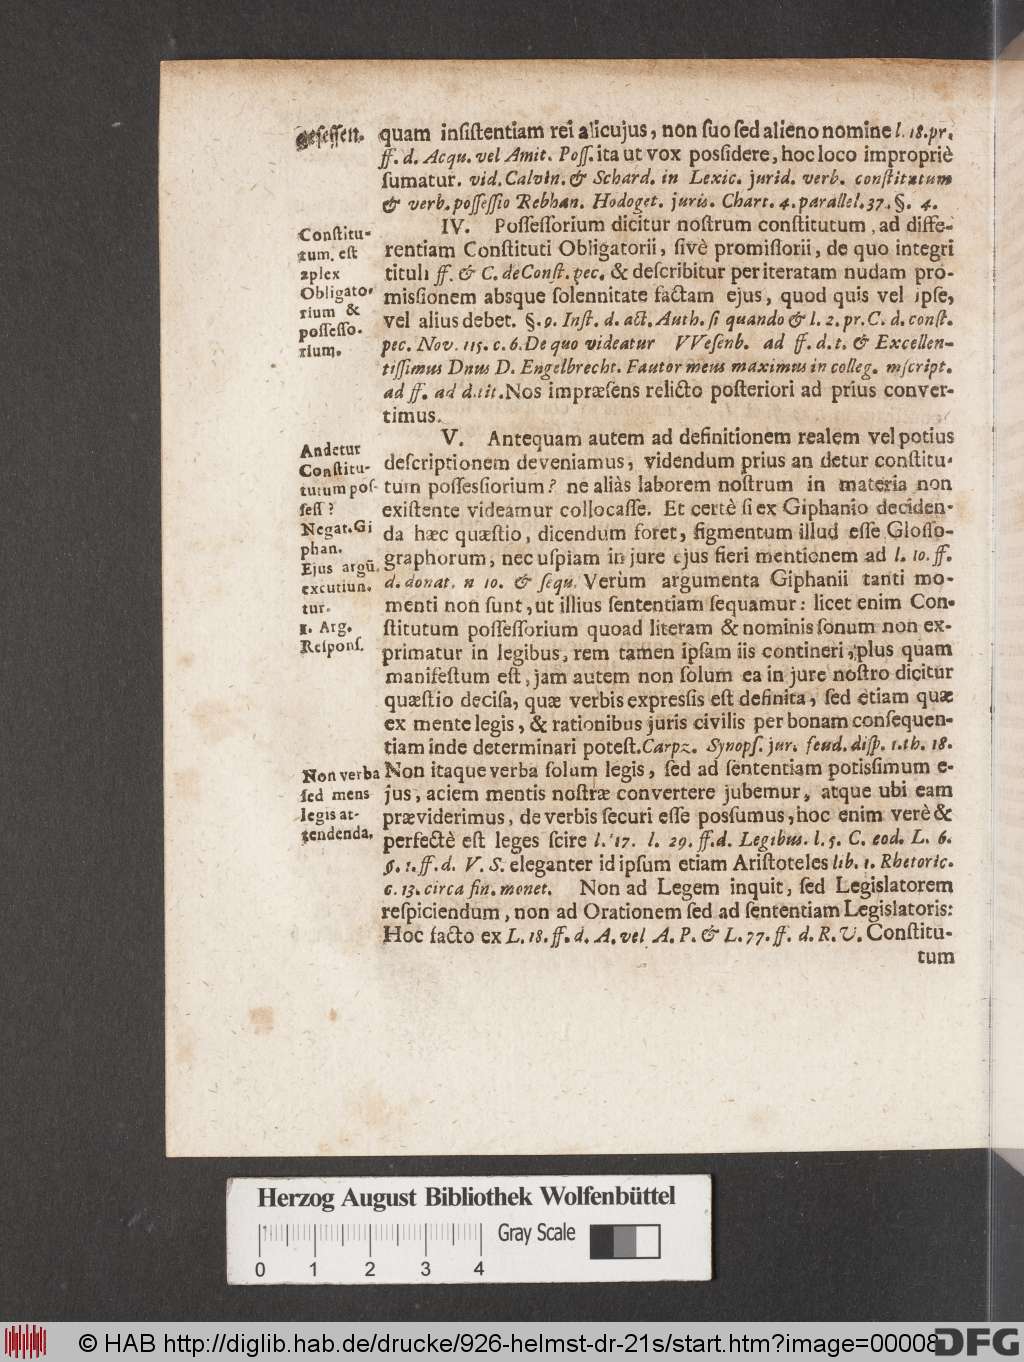 geſeſſen.
quam inſiſtentiam rei alicujus, non ſuo ſed alieno nomine l. 18. pr.
ff. d. Acqu. vel Amit. Poſſ. ita ut vox poſſidere, hoc loco impropriè
ſumatur. vid. Calvin. & Schard. in Lexic. jurid. verb. conſtitutum
& verb. poſſeſſio Rebhan. Hodoget. juris. Chart. 4. parallel. 37. §. 4.
Conſtitu-
tum. eſt
aplex
Obligato-
rium &
poſſeſſo-
rium.
IV. Poſſeſſorium dicitur noſtrum conſtitutum, ad diffe-
rentiam Conſtituti Obligatorii, ſivè promiſſorii, de quo integri
tituli ff. & C. de Conſt. pec. & deſcribitur per iteratam nudam pro-
miſſionem absque ſolennitate factam ejus, quod quis vel ipſe,
vel alius debet. §. 9. Inſt. d. act. Auth. ſi quando & l. 2. pr. C. d. conſt.
pec. Nov. 115. c. 6. De quo videatur VVeſenb. ad ff. d. t. & Excellen-
tiſſimus Dnus D. Engelbrecht. Fautor meus maximus in colleg. mſcript.
ad ff. ad d. tit. Nos impræſens relicto poſteriori ad prius conver-
timus.
Andetur
Conſtitu-
tutum poſ-
ſeſſ?
Negat. Gi
phan.
Ejus argū.
excutiun.
tur.
1. Arg.
Reſponſ.
V. Antequam autem ad definitionem realem vel potius
deſcriptionem deveniamus, videndum prius an detur conſtitu-
tum poſſeſſiorium? ne aliàs laborem noſtrum in materia non
exiſtente videamur collocaſſe. Et certè ſi ex Giphanio deciden-
da hæc quæſtio, dicendum foret, figmentum illud eſſe Gloſſo-
graphorum, nec uſpiam in jure ejus fieri mentionem ad l. 10. ff.
d. donat. n 10. & ſequ. Verùm argumenta Giphanii tanti mo-
menti non ſunt, ut illius ſententiam ſequamur: licet enim Con-
ſtitutum poſſeſſorium quoad literam & nominis ſonum non ex-
primatur in legibus, rem tamen ipſam iis contineri, plus quam
manifeſtum eſt, jam autem non ſolum ea in jure noſtro dicitur
quæſtio deciſa, quæ verbis expreſſis eſt definita, ſed etiam quæ
ex mente legis, & rationibus juris civilis per bonam conſequen-
tiam inde determinari poteſt. Carpz. Synopſ. jur. feud. diſp. 1. th. 18.
Non verba
ſed mens
legis at-
tendenda.
Non itaque verba ſolum legis, ſed ad ſententiam potiſſimum e-
jus, aciem mentis noſtræ convertere jubemur, atque ubi eam
præviderimus, de verbis ſecuri eſſe poſſumus, hoc enim verè &
perfectè eſt leges ſcire l. 17. l. 29. ff. d. Legibus. l. 5. C. eod. L. 6.
§. 1. ff. d. V. S. eleganter id ipſum etiam Ariſtoteles lib. 1. Rhetoric.
c. 13. circa fin. monet. Non ad Legem inquit, ſed Legislatorem
reſpiciendum, non ad Orationem ſed ad ſententiam Legislatoris:
Hoc facto ex L. 18. ff. d. A. vel A. P. & L. 77. ff. d. R. V. Conſtitu-
tum
Herzog August Bibliothek Wolfenbüttel
Gray Scale
0 1 2 3 4
© HAB http://diglib.hab.de/drucke/926-helmst-dr-21s/start.htm?image=00008
DFG